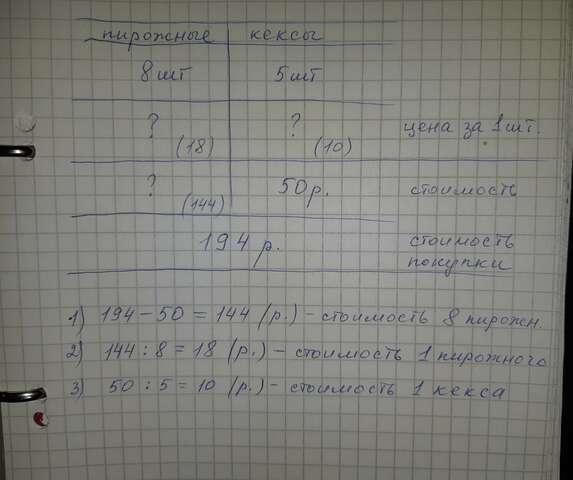 пирожные кексы
8 шт 5 шт
? ? цена за 1 шт.
(18) (10)
? 50 р. стоимость
(144)
194 р. стоимость
покупки
1) 194 - 50 = 144 (р.) - стоимость 8 пирожн.
2) 144 : 8 = 18 (р.) - стоимость 1 пирожного
3) 50 : 5 = 10 (р.) - стоимость 1 кекса